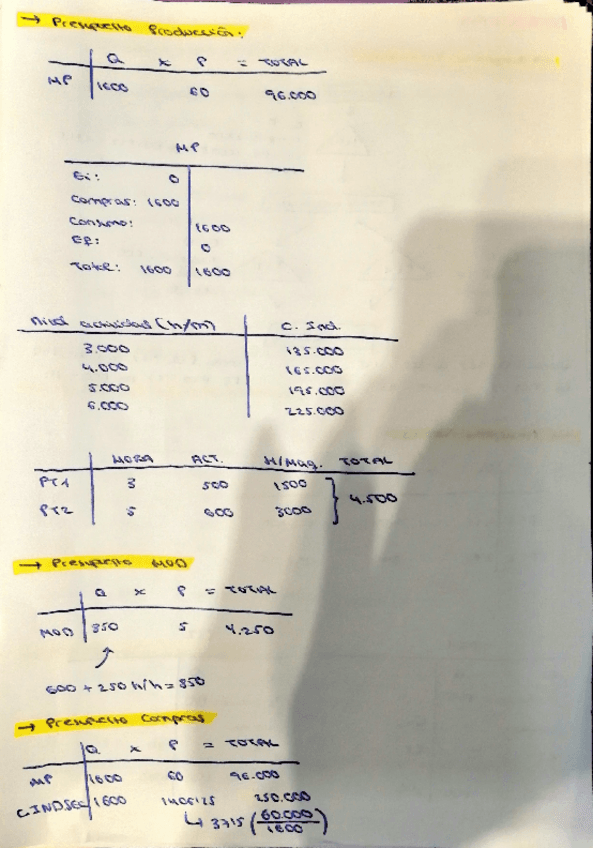 → Presupuesto Producción:
Q x P = TOTAL
MP 1600 60 96.000
MP
Ei: 0
Compras: 1600
Consumo: 1600
Ef: 0
Total: 1600 1600
Nivel actividad (h/m) C. Ind.
3.000 135.000
4.000 165.000
5.000 195.000
6.000 225.000
HORA ACT. H/Maq. TOTAL
PT1 3 500 1500
4.500
PT2 5 600 3000
→ Presupuesto MOD
Q x P = TOTAL
MOD 850 5 4.250
600 + 250 h/h = 850
→ Presupuesto Compras
Q x P = TOTAL
MP 1600 60 96.000
C.INDSEC 1600 250.000
↳ 37'5 (60.000/1600)